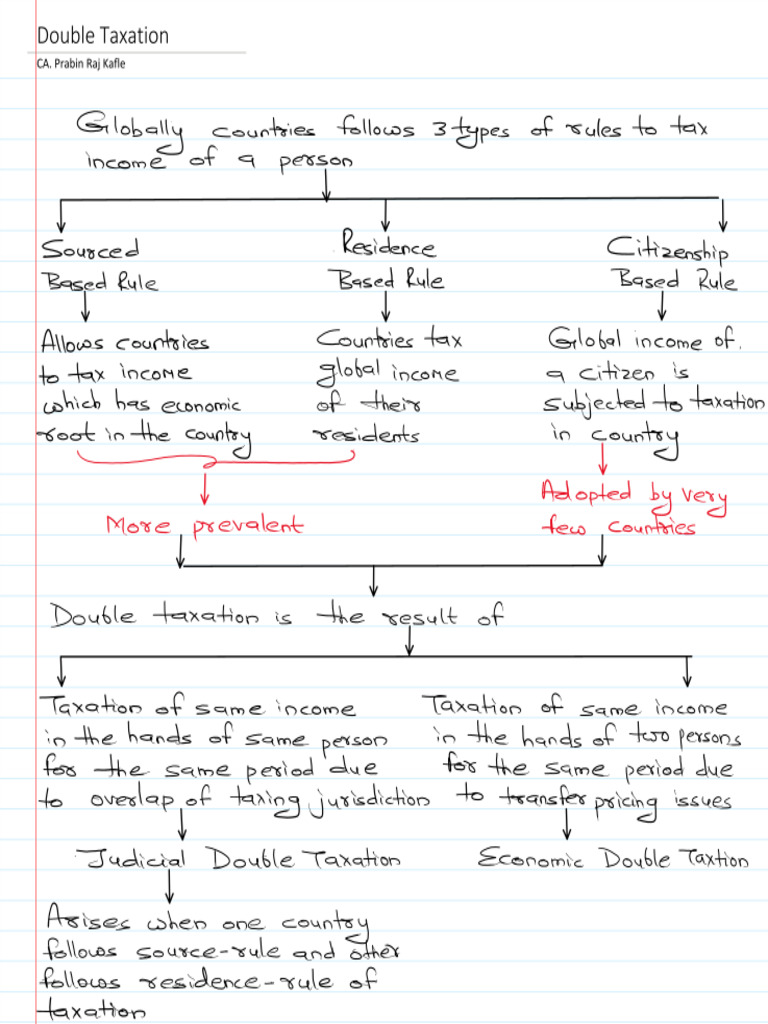 Double Taxation
CA. Prabin Raj Kafle
Globally countries follows 3 types of rules to tax
income of a person
Sourced
Based Rule
Residence
Based Rule
Citizenship
Based Rule
Allows countries
to tax income
which has economic
root in the country
Countries tax
global income
of their
residents
Global income of.
a citizen is
subjected to taxation
in country
More prevalent
Adopted by very
few countries
Double taxation is the result of
Taxation of same income
in the hands of same person
for the same period due
to overlap of taxing jurisdiction
Taxation of same income
in the hands of two persons
for the same period due
to transfer pricing issues
Judicial Double Taxation
Economic Double Taxtion
Arises when one country
follows source-rule and other
follows residence-rule of
taxation